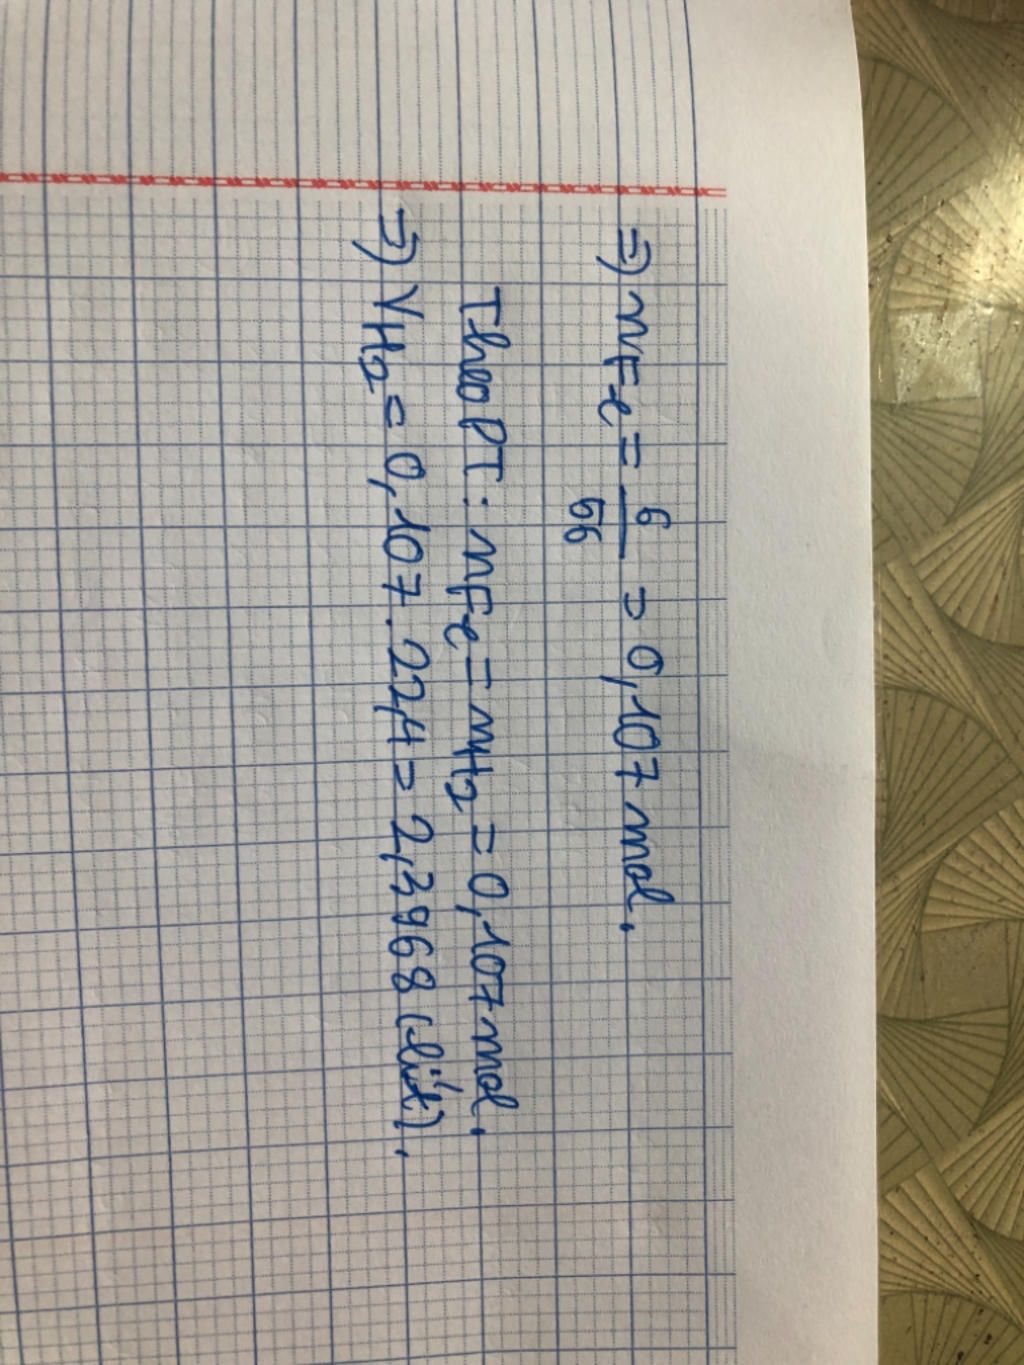 => nFe = 6/56 = 0,107 mol.
Theo PT: nFe = nH2 = 0,107 mol.
=> VH2 = 0,107 . 22,4 = 2,3968 (lít).